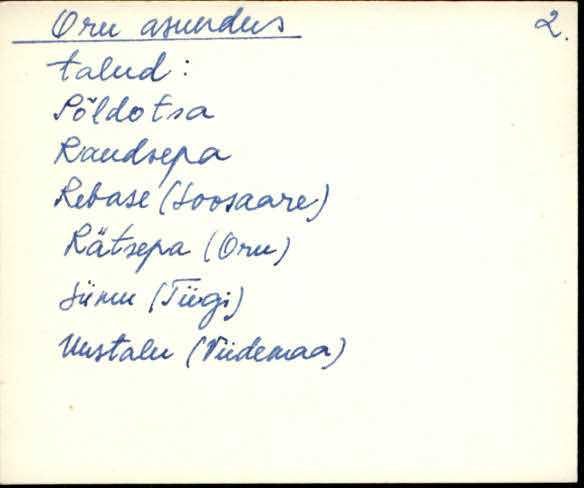 Oru asundus 2.
talud:
Põldotsa
Raudsepa
Rebase (Soosaare)
Rätsepa (Oru)
Siimu (Tiigi)
Uustalu (Viidemaa)